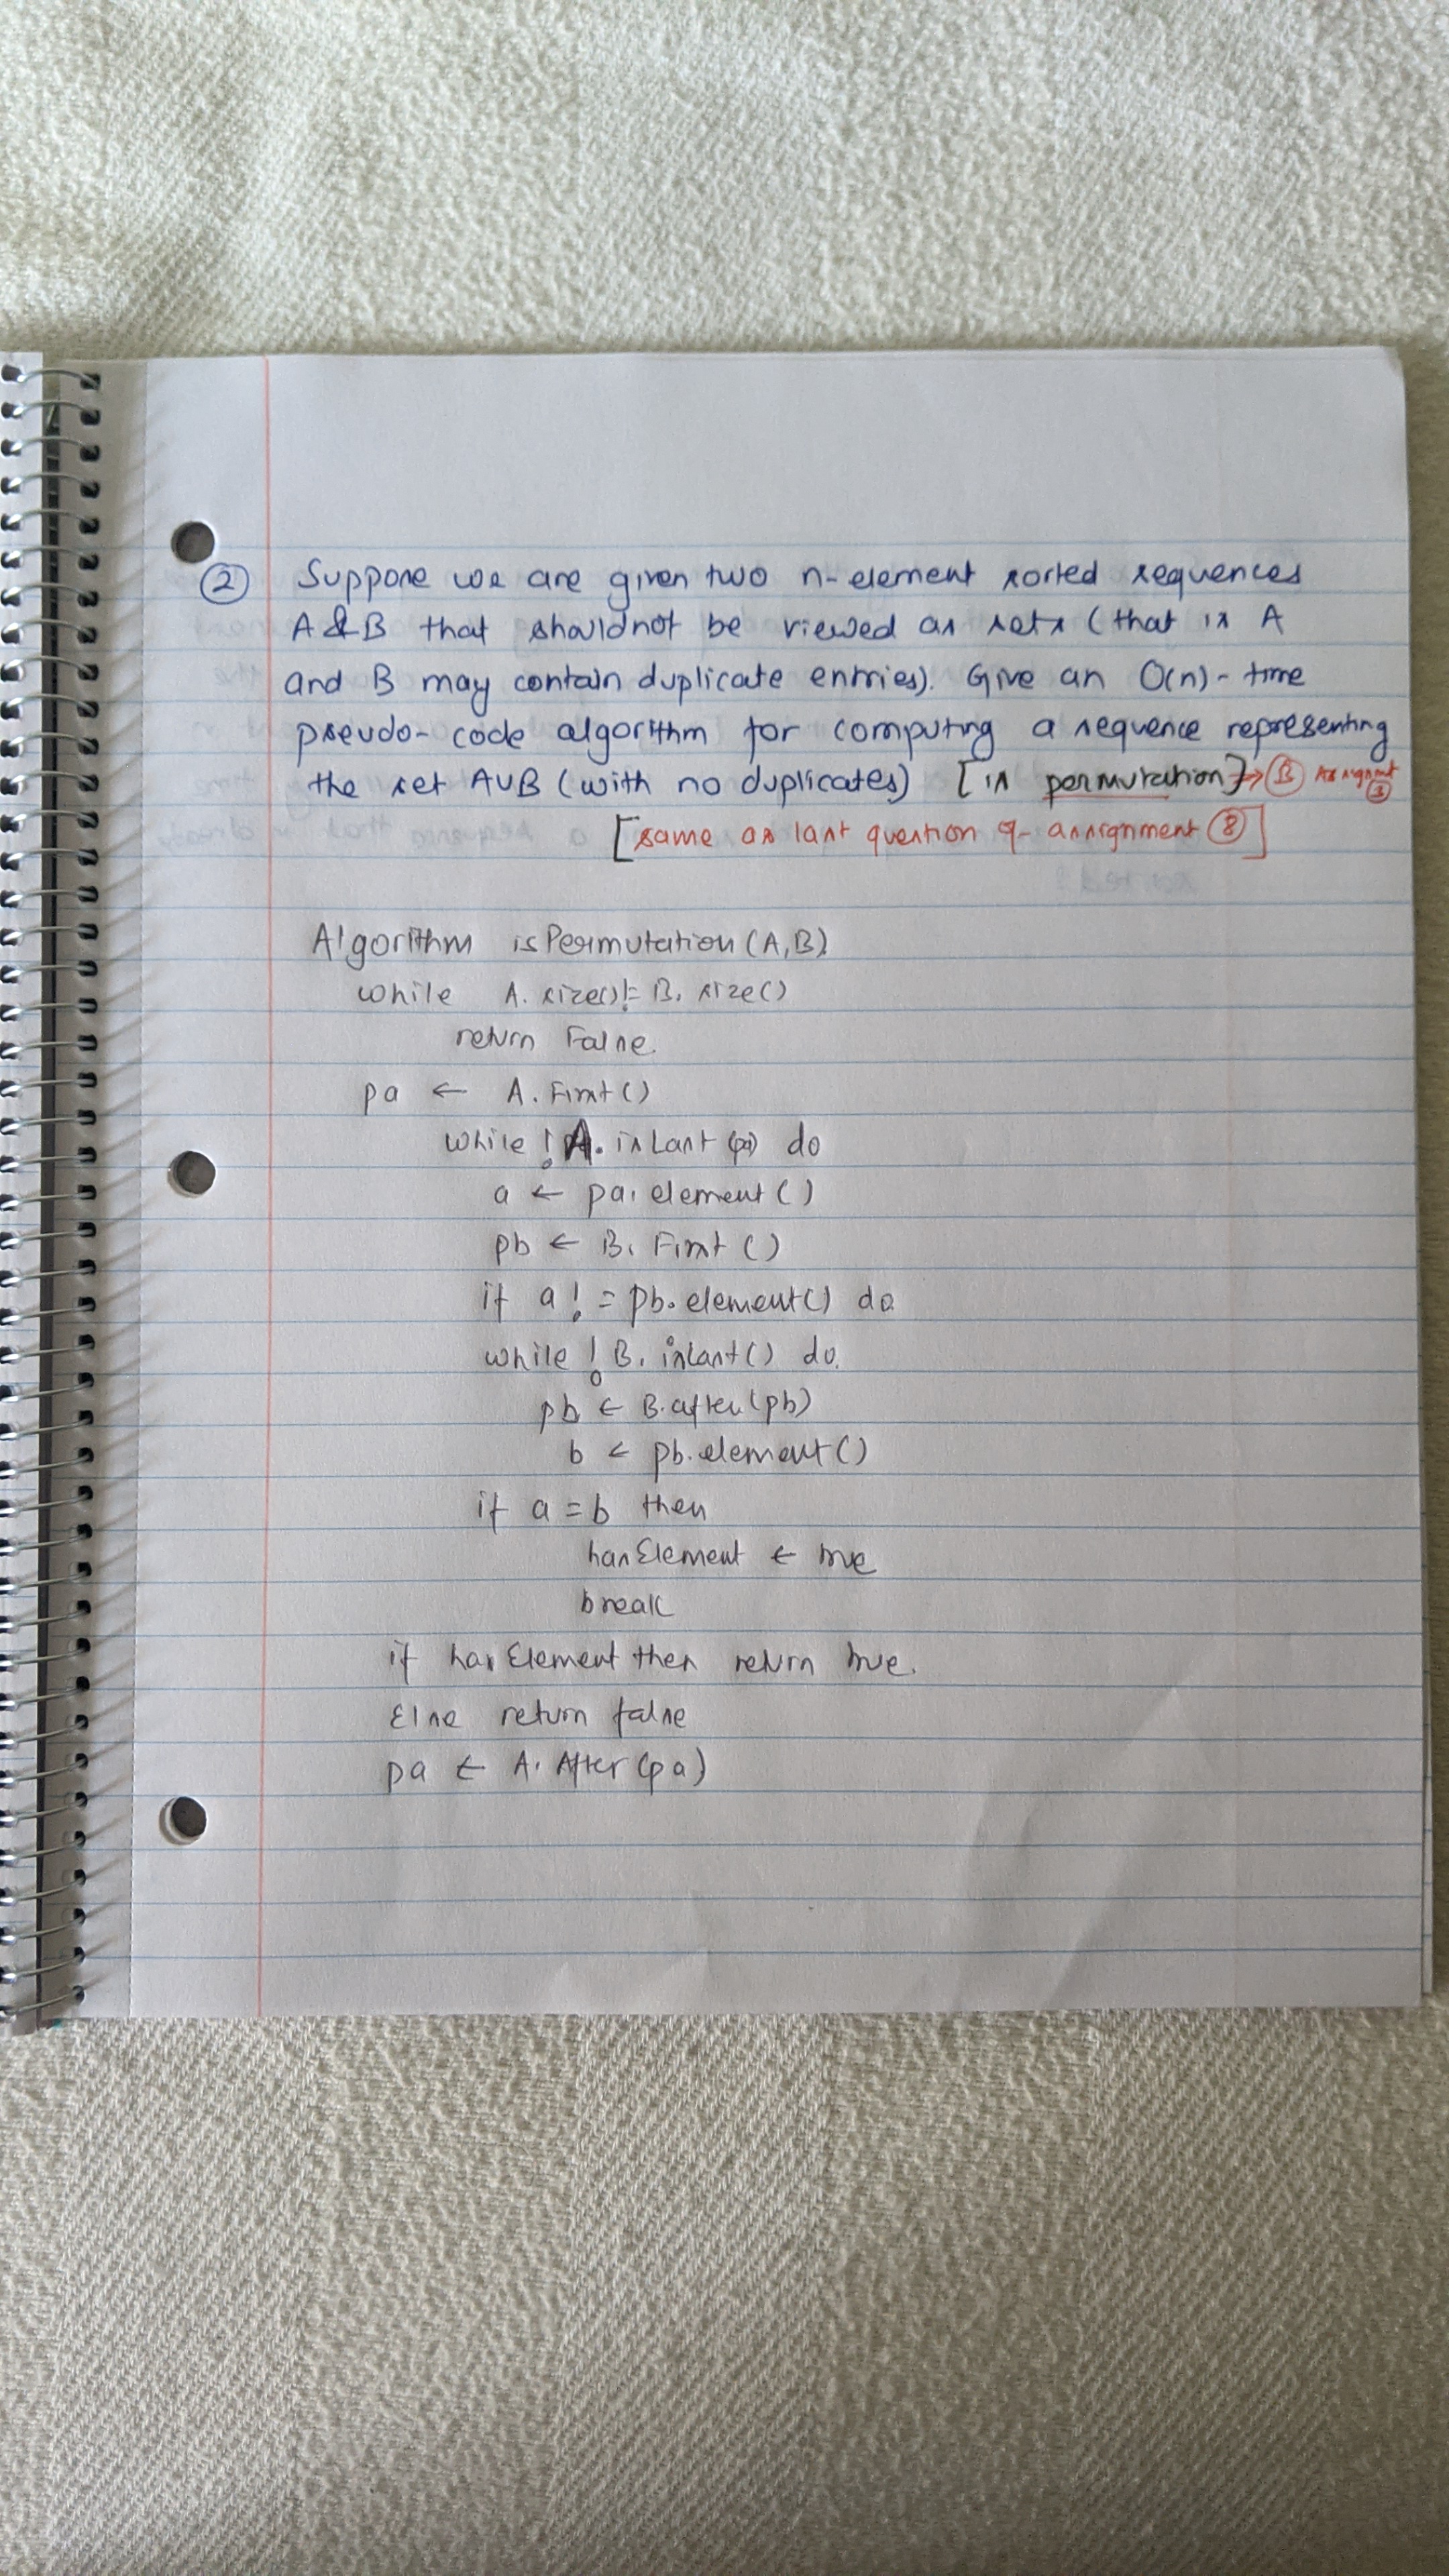 ② Suppose we are given two n-element sorted sequences
A & B that should not be viewed as sets (that is A
and B may contain duplicate entries). Give an O(n)-time
pseudo-code algorithm for computing a sequence representing
the set AUB (with no duplicates) [is permutation] → Ⓑ Assignmt ③
[same as last question of assignment ⑧]
Algorithm isPermutation(A,B)
while A.size() != B.size()
return False.
pa ← A.First()
while ! A.isLast(pa) do
a ← pa.element()
pb ← B.First()
if a != pb.element() do
while ! B.islast() do.
pb ← B.after(pb)
b ← pb.element()
if a = b then
hasElement ← true
break
if hasElement then return true.
Else return false
pa ← A.After(pa)